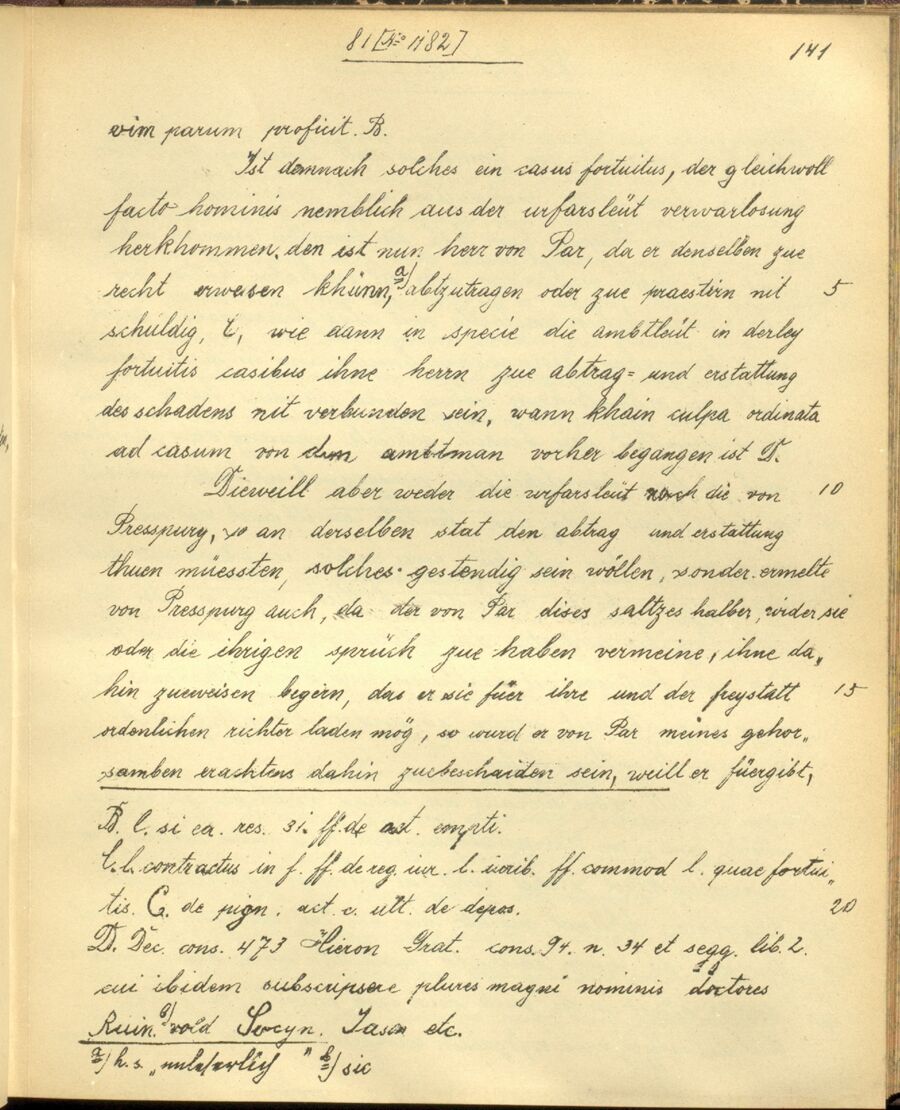 81 [No 1182]
141
vim parum proficit. B.
Ist demnach solches ein casus fortuitus, der gleichwoll
facto hominis nemblich aus der urfarsleüt verwarlosung
herkhommen, den ist nun herr von Par, da er denselben zue
recht erweisen khünn, a) abtzutragen oder zue praestirn nit 5
schuldig, C, wie dann in specie die ambtleüt in derley
fortuitis casibus ihne herrn zue abtrag= und erstattung
des schadens nit verbunden sein, wann khain culpa ordinata
ad casum von dem ambtman vorher begangen ist D.
Dieweill aber weder die urfarsleüt noch die von 10
Presspurg, so an derselben stat den abtrag und erstattung
thuen müessten, solches gestendig sein wöllen, sonder ermelte
von Presspurg auch, da der von Par dises saltzes halber, wider sie
oder die ihrigen sprüch zue haben vermeine, ihne da„
hin zueweisen begern, das er sie füer ihre und der freystatt 15
ordenlichen richter laden mög, so wurd er von Par meines gehor„
samben erachtens dahin zuebeschaiden sein, weill er füergibt,
B. l. si ea. res. 31. ff. de act. empti.
C. l. contractus in f. ff. de reg. iur. l. ff. commod l. quae fortui„
tis. C. de pign. act. c. ult. de depos. 20
D. Dec. cons. 473 Hieron Grat. cons. 94. n. 34 et segg. lib. 2.
cui ibidem subscripsere plures magni nominis doctores
Ruin. b) void Socyn. Jason etc.
a) h. s. „ " b) sic